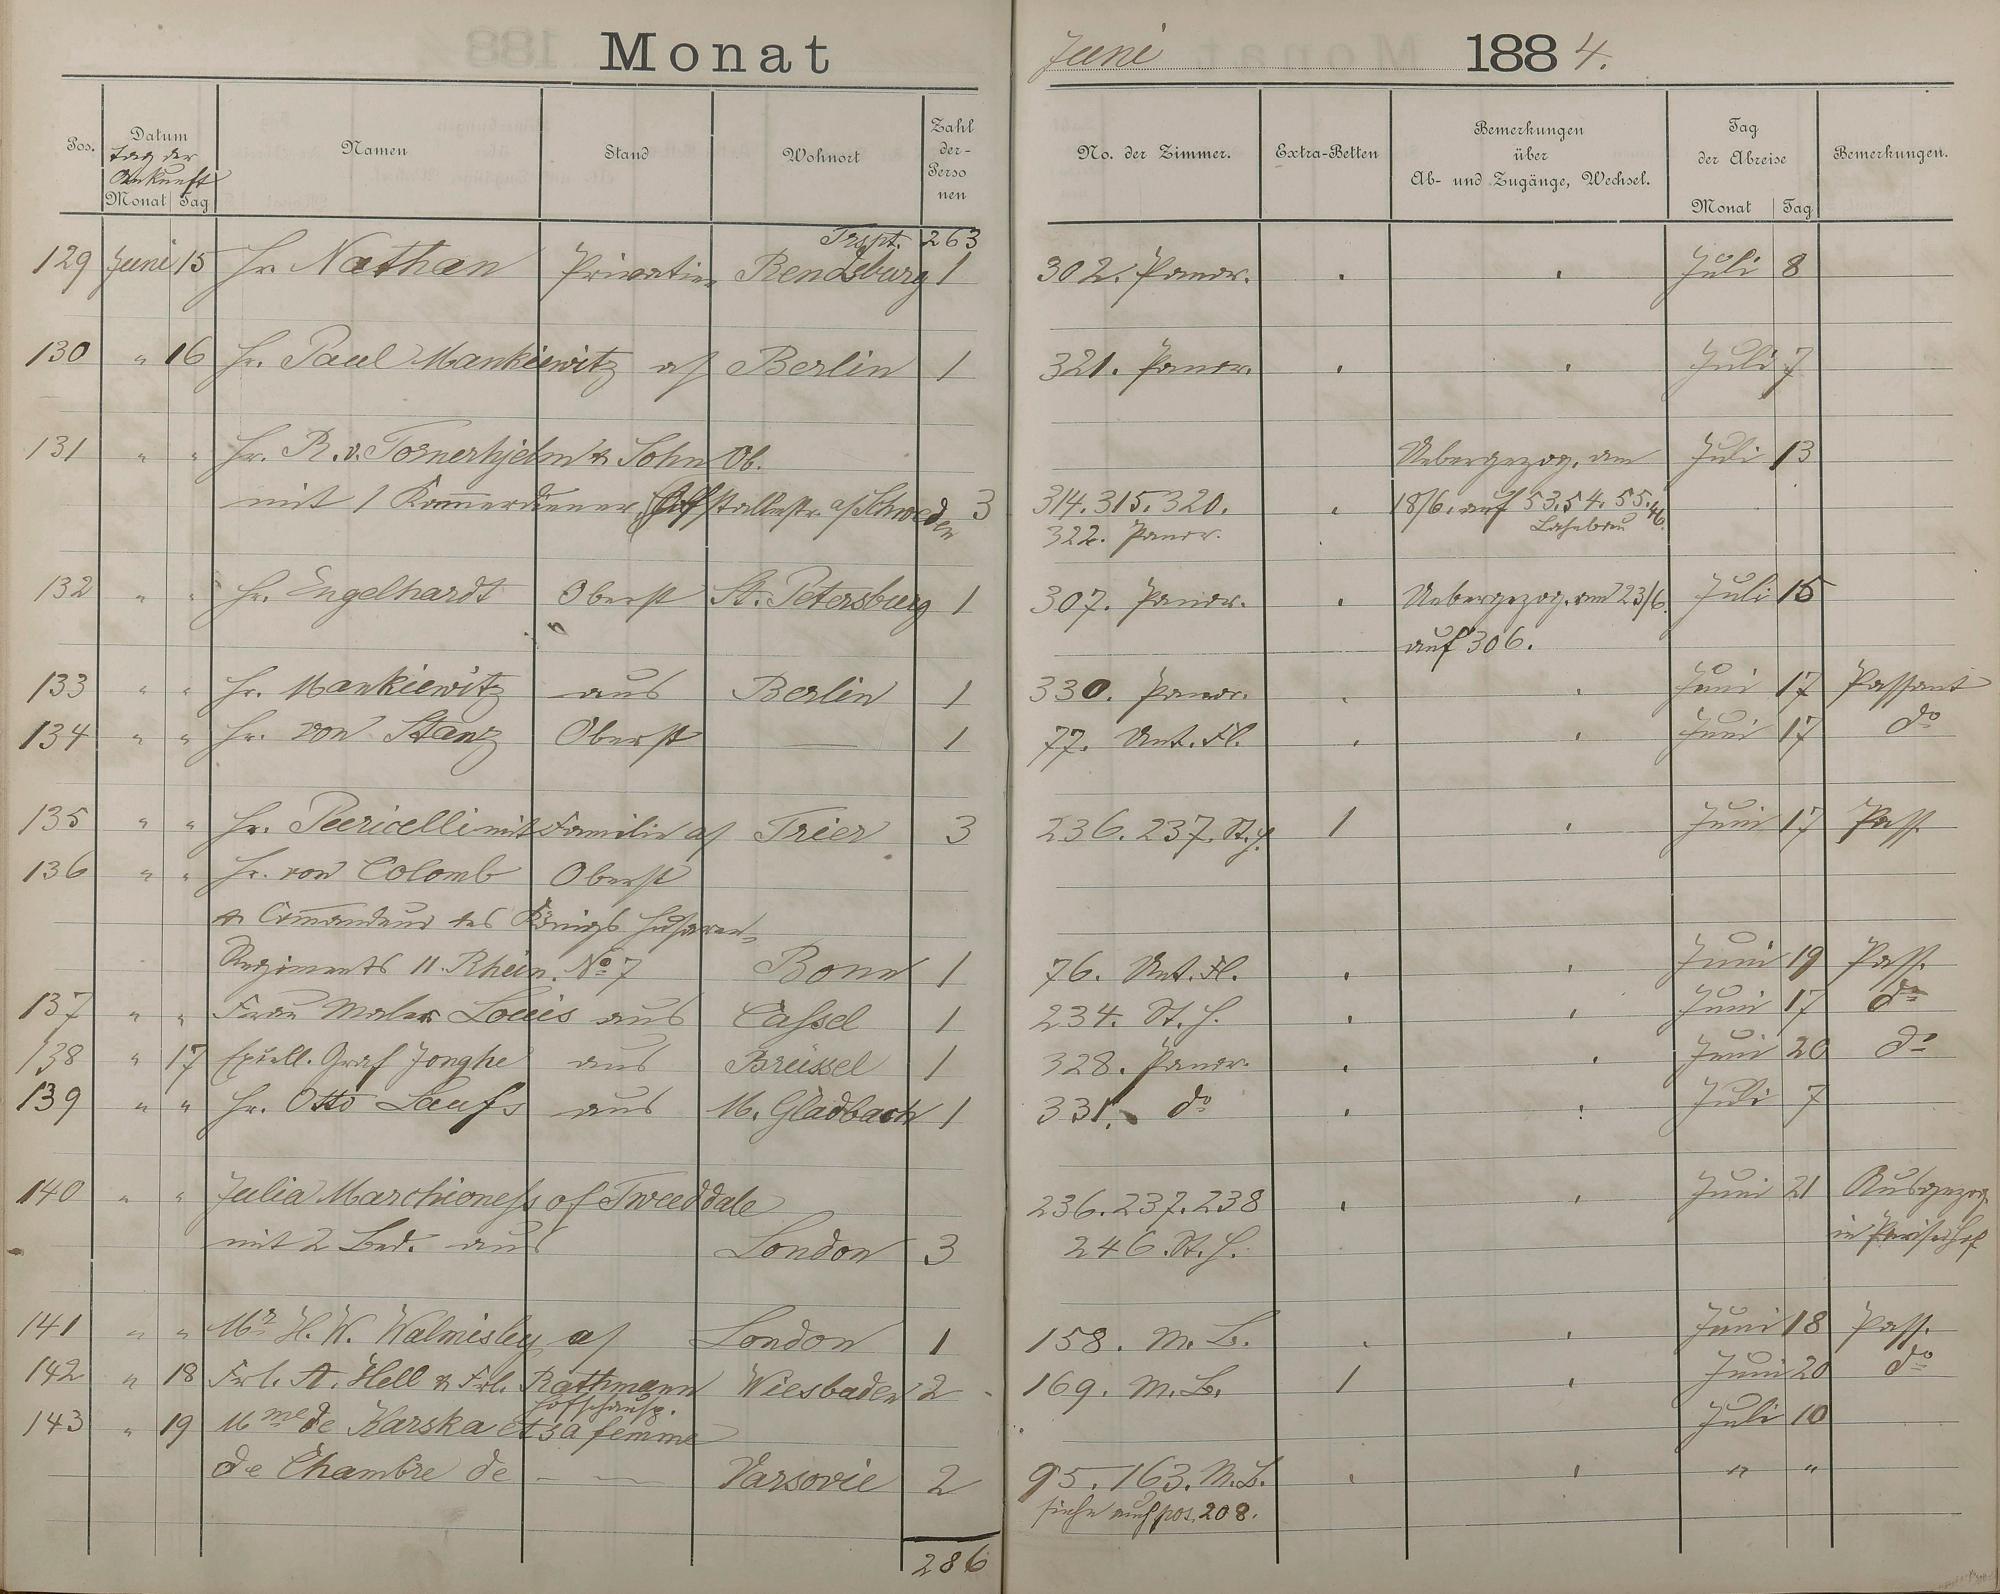 Monat Juni 1884.
Pos. Datum Tag der Ankunft Monat Tag Namen Stand Wohnort Zahl der Personen No. der Zimmer. Extra-Betten Bemerkungen über Ab- und Zugänge, Wechsel. Tag der Abreise Monat Tag Bemerkungen.
Trspt. 263
129 Juni 15 Hr. Nathan Privatier Rendsburg 1 302. Panor. Juli 8
130 " 16 Hr. Paul Mankiewitz a/ Berlin 1 321. Panor. Juli 7
131 " " Hr. R. v. Tornerhjelm & Sohn Ob. Uebergezog. am Juli 13
mit 1 Kammerdiener Hofstallmstr. a/Schweden 3 314. 315. 320. 18/6. auf 53. 54. 55. 46.
322. Panor. Lahnbau
132 " " Hr. Engelhardt Oberst St. Petersburg 1 307. Panor. Uebergezog. am 23/6. Juli 15
auf 306.
133 " " Hr. Mankiewitz aus Berlin 1 330. Panor. Juni 17 Passant
134 " " Hr. von Stanz Oberst — 1 77. Unt. Fl. Juni 17 do
135 " " Hr. Peericelli mit Familie a/ Trier 3 236. 237. St. H. 1 Juni 17 Pass.
136 " " Hr. von Colomb Oberst
& Comandeur des Königs Husaren-
Regiments 11. Rhein. No 7 Bonn 1 76. Unt. Fl. Juni 19 Pass.
137 " " Frau Maler Louis aus Cassel 1 234. St. H. Juni 17 do
138 " 17 Excell. Graf Jonghe aus Brüssel 1 328. Panor. Juni 20 do
139 " " Hr. Otto Laufs aus M. Gladbach 1 331. do Juli 7
140 " " Julia Marchioness of Tweeddale 236. 237. 238 Juni 21 Ausgezog.
mit 2 Bed. aus London 3 246. St. H. in Pariserhof
141 " " Mr. H. W. Walmisley a/ London 1 158. M. B. Juni 18 Pass.
142 " 18 Frl. A. Hell & Frl. Rathmann Wiesbaden 2 169. M. B. 1 Juni 20 do
Hofschausp.
143 " 19 Mme de Karska et sa femme Juli 10
de Chambre de — — Varsovie 2 95. 163. M. B. " "
siehe auch pos. 208.
286